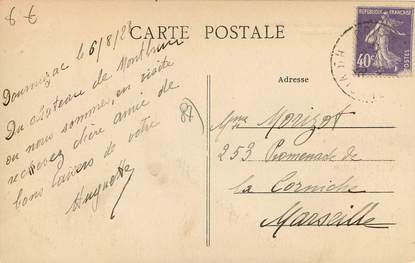 6 €
CARTE POSTALE
Dournazac le 6/8/28
Du château de Montbrun
ou nous sommes en visite
recevez chère amie de
bons baisers de votre
Huguette
Adresse
Mme Morizot
253 Promenade de
la Corniche
Marseille
REPUBLIQUE FRANÇAISE
40c
POSTES